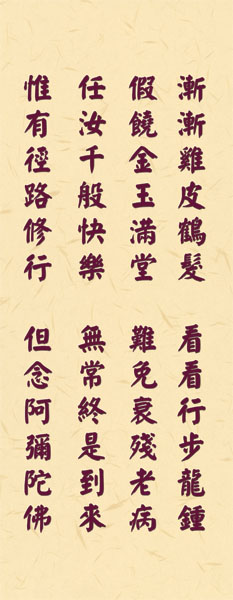 漸漸雞皮鶴髮
看看行步龍鍾
假饒金玉滿堂
難免衰殘老病
任汝千般快樂
無常終是到來
惟有徑路修行
但念阿彌陀佛